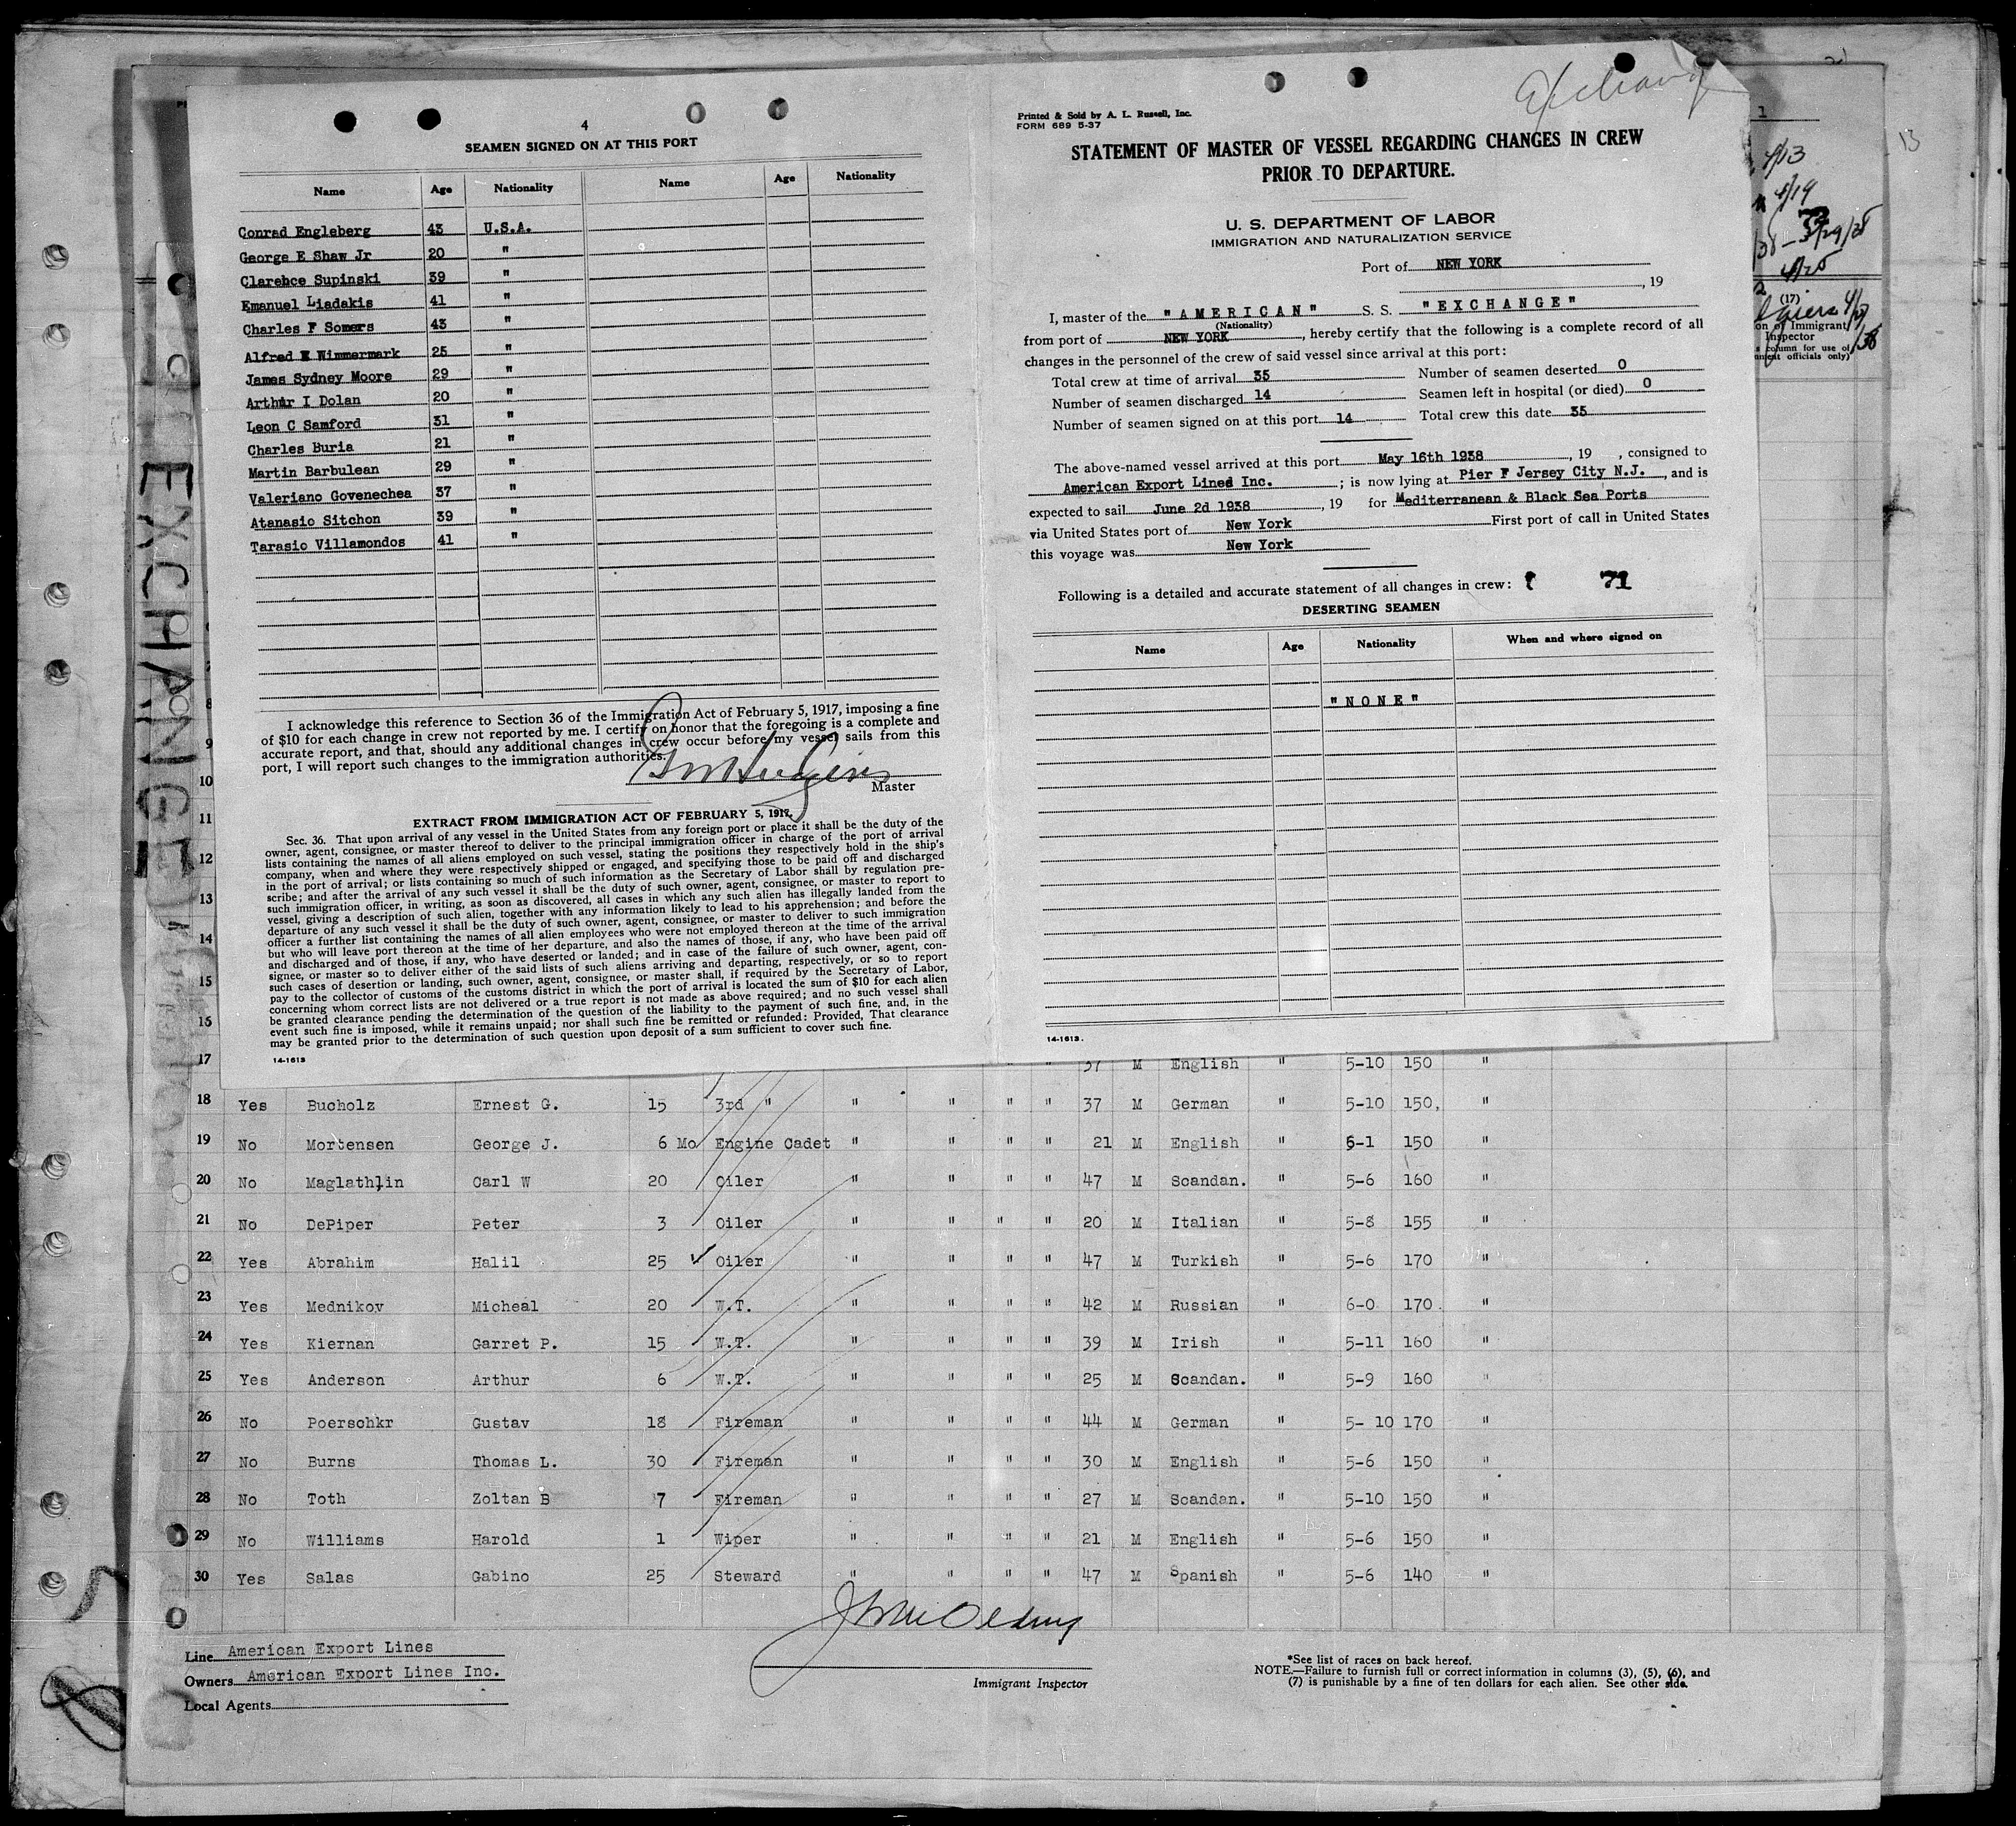 4
SEAMEN SIGNED ON AT THIS PORT
Name Age Nationality Name Age Nationality
Conrad Engleberg 43 U.S.A.
George E Shaw Jr 20 "
Clarehce Supinski 39 "
Emanuel Liadakis 41 "
Charles F Somers 43 "
Alfred E Wimmermark 25 "
James Sydney Moore 29 "
Arthur I Dolan 20 "
Leon C Samford 31 "
Charles Buria 21 "
Martin Barbulean 29 "
Valeriano Govenechea 37 "
Atanasio Sitchon 39 "
Tarasio Villamondos 41 "
I acknowledge this reference to Section 36 of the Immigration Act of February 5, 1917, imposing a fine
of $10 for each change in crew not reported by me. I certify on honor that the foregoing is a complete and
accurate report, and that, should any additional changes in crew occur before my vessel sails from this
port, I will report such changes to the immigration authorities.
Master
EXTRACT FROM IMMIGRATION ACT OF FEBRUARY 5, 1917.
Sec. 36. That upon arrival of any vessel in the United States from any foreign port or place it shall be the duty of the
owner, agent, consignee, or master thereof to deliver to the principal immigration officer in charge of the port of arrival
lists containing the names of all aliens employed on such vessel, stating the positions they respectively hold in the ship's
company, when and where they were respectively shipped or engaged, and specifying those to be paid off and discharged
in the port of arrival; or lists containing so much of such information as the Secretary of Labor shall by regulation pre-
scribe; and after the arrival of any such vessel it shall be the duty of such owner, agent, consignee, or master to report to
such immigration officer, in writing, as soon as discovered, all cases in which any such alien has illegally landed from the
vessel, giving a description of such alien, together with any information likely to lead to his apprehension; and before the
departure of any such vessel it shall be the duty of such owner, agent, consignee, or master to deliver to such immigration
officer a further list containing the names of all alien employees who were not employed thereon at the time of the arrival
but who will leave port thereon at the time of her departure, and also the names of those, if any, who have been paid off
and discharged and of those, if any, who have deserted or landed; and in case of the failure of such owner, agent, con-
signee, or master so to deliver either of the said lists of such aliens arriving and departing, respectively, or so to report
such cases of desertion or landing, such owner, agent, consignee, or master shall, if required by the Secretary of Labor,
pay to the collector of customs of the customs district in which the port of arrival is located the sum of $10 for each alien
concerning whom correct lists are not delivered or a true report is not made as above required; and no such vessel shall
be granted clearance pending the determination of the question of the liability to the payment of such fine, and, in the
event such fine is imposed, while it remains unpaid; nor shall such fine be remitted or refunded: Provided, That clearance
may be granted prior to the determination of such question upon deposit of a sum sufficient to cover such fine.
14-1613
Exchange
Printed & Sold by A. L. Russell, Inc.
FORM 689 5-37
STATEMENT OF MASTER OF VESSEL REGARDING CHANGES IN CREW
PRIOR TO DEPARTURE.
U. S. DEPARTMENT OF LABOR
IMMIGRATION AND NATURALIZATION SERVICE
Port of NEW YORK
, 19
I, master of the "AMERICAN" S. S. "EXCHANGE"
(Nationality)
from port of NEW YORK, hereby certify that the following is a complete record of all
changes in the personnel of the crew of said vessel since arrival at this port:
Total crew at time of arrival 35 Number of seamen deserted 0
Number of seamen discharged 14 Seamen left in hospital (or died) 0
Number of seamen signed on at this port 14 Total crew this date 35
The above-named vessel arrived at this port May 16th 1938, 19 , consigned to
American Export Lined Inc. ; is now lying at Pier F Jersey City N.J., and is
expected to sail June 2d 1938, 19 for Mediterranean & Black Sea Ports
via United States port of New York First port of call in United States
this voyage was New York
Following is a detailed and accurate statement of all changes in crew: 71
DESERTING SEAMEN
Name Age Nationality When and where signed on
"NONE"
14-1613.
1
13
4/13
4/19
(17)
on of Immigrant
Inspector
s column for use of
ment officials only)
EXCHANGE
8
9
10
11
12
13
14
15
16
17 " 37 M English " 5-10 150 "
18 Yes Bucholz Ernest G. 15 3rd " " " " " 37 M German " 5-10 150, "
19 No Mortensen George J. 6 Mo Engine Cadet " " " " 21 M English " 6-1 150 "
20 No Maglathlin Carl W 20 Oiler " " " " 47 M Scandan. " 5-6 160 "
21 No DePiper Peter 3 Oiler " " " " 20 M Italian " 5-8 155 "
22 Yes Abrahim Halil 25 Oiler " " " " 47 M Turkish " 5-6 170 "
23 Yes Mednikov Micheal 20 W.T. " " " " 42 M Russian " 6-0 170. "
24 Yes Kiernan Garret P. 15 W.T. " " " " 39 M Irish " 5-11 160 "
25 Yes Anderson Arthur 6 W.T. " " " " 25 M Scandan. " 5-9 160 "
26 No Poerschkr Gustav 18 Fireman " " " " 44 M German " 5- 10 170 "
27 No Burns Thomas L. 30 Fireman " " " " 30 M English " 5-6 150 "
28 No Toth Zoltan B 7 Fireman " " " " 27 M Scandan. " 5-10 150 "
29 No Williams Harold 1 Wiper " " " " 21 M English " 5-6 150 "
30 Yes Salas Gabino 25 Steward " " " " 47 M Spanish " 5-6 140 "
Line American Export Lines
Owners American Export Lines Inc.
Local Agents
Immigrant Inspector
*See list of races on back hereof.
NOTE.—Failure to furnish full or correct information in columns (3), (5), (6), and
(7) is punishable by a fine of ten dollars for each alien. See other side.